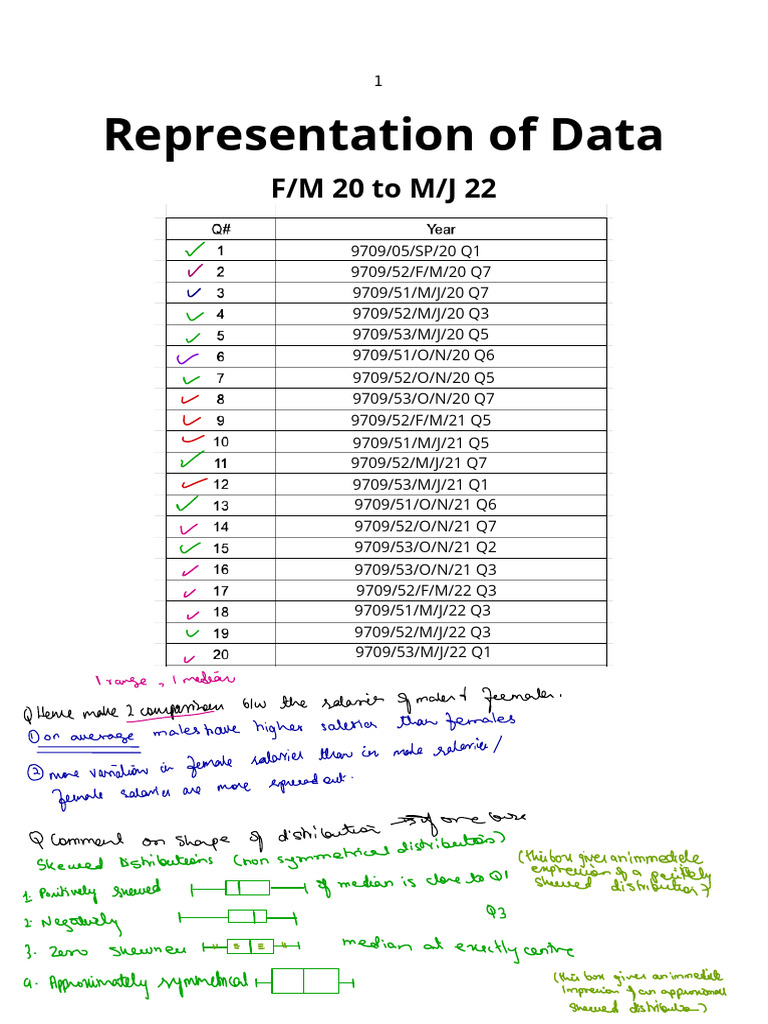 1
Representation of Data
F/M 20 to M/J 22
Q# Year
1 9709/05/SP/20 Q1
2 9709/52/F/M/20 Q7
3 9709/51/M/J/20 Q7
4 9709/52/M/J/20 Q3
5 9709/53/M/J/20 Q5
6 9709/51/O/N/20 Q6
7 9709/52/O/N/20 Q5
8 9709/53/O/N/20 Q7
9 9709/52/F/M/21 Q5
10 9709/51/M/J/21 Q5
11 9709/52/M/J/21 Q7
12 9709/53/M/J/21 Q1
13 9709/51/O/N/21 Q6
14 9709/52/O/N/21 Q7
15 9709/53/O/N/21 Q2
16 9709/53/O/N/21 Q3
17 9709/52/F/M/22 Q3
18 9709/51/M/J/22 Q3
19 9709/52/M/J/22 Q3
20 9709/53/M/J/22 Q1
1 range, 1 median
Q Hence make 2 comparison b/w the salaries of males & feemales.
① on average males have higher salaries than females
② more variation in female salaries than in male salaries/
female salaries are more spread out.
Q Comment on shape of distribution → if one
Skewed Distributions (non symmetrical distributions)
1. Positively skewed if median is close to Q1
(this box gives an immediate
expression of a positively
skewed distribution)
2. Negatively Q3
3. Zero skewness median at exactly centre
4. Approximately symmetrical
(this box gives an immediate
impression of an approximal
skewed distribution)